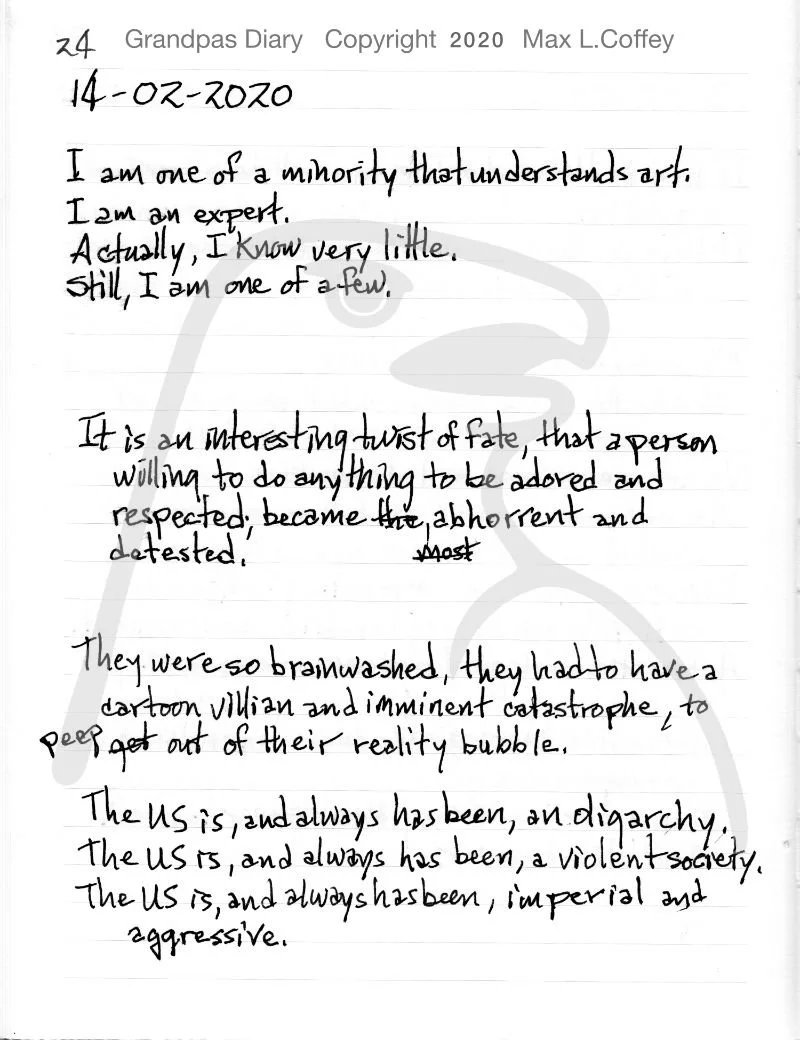 24 Grandpas Diary Copyright 2020 Max L.Coffey
14-02-2020
I am one of a minority that understands art.
I am an expert.
Actually, I know very little.
Still, I am one of a few.
It is an interesting twist of fate, that a person
willing to do anything to be adored and
respected, became the abhorrent and
most
detested.
They were so brainwashed, they had to have a
cartoon villian and imminent catastrophe, to
peep get out of their reality bubble.
The US is, and always has been, an oligarchy.
The US is, and always has been, a violent society.
The US is, and always has been, imperial and
aggressive.